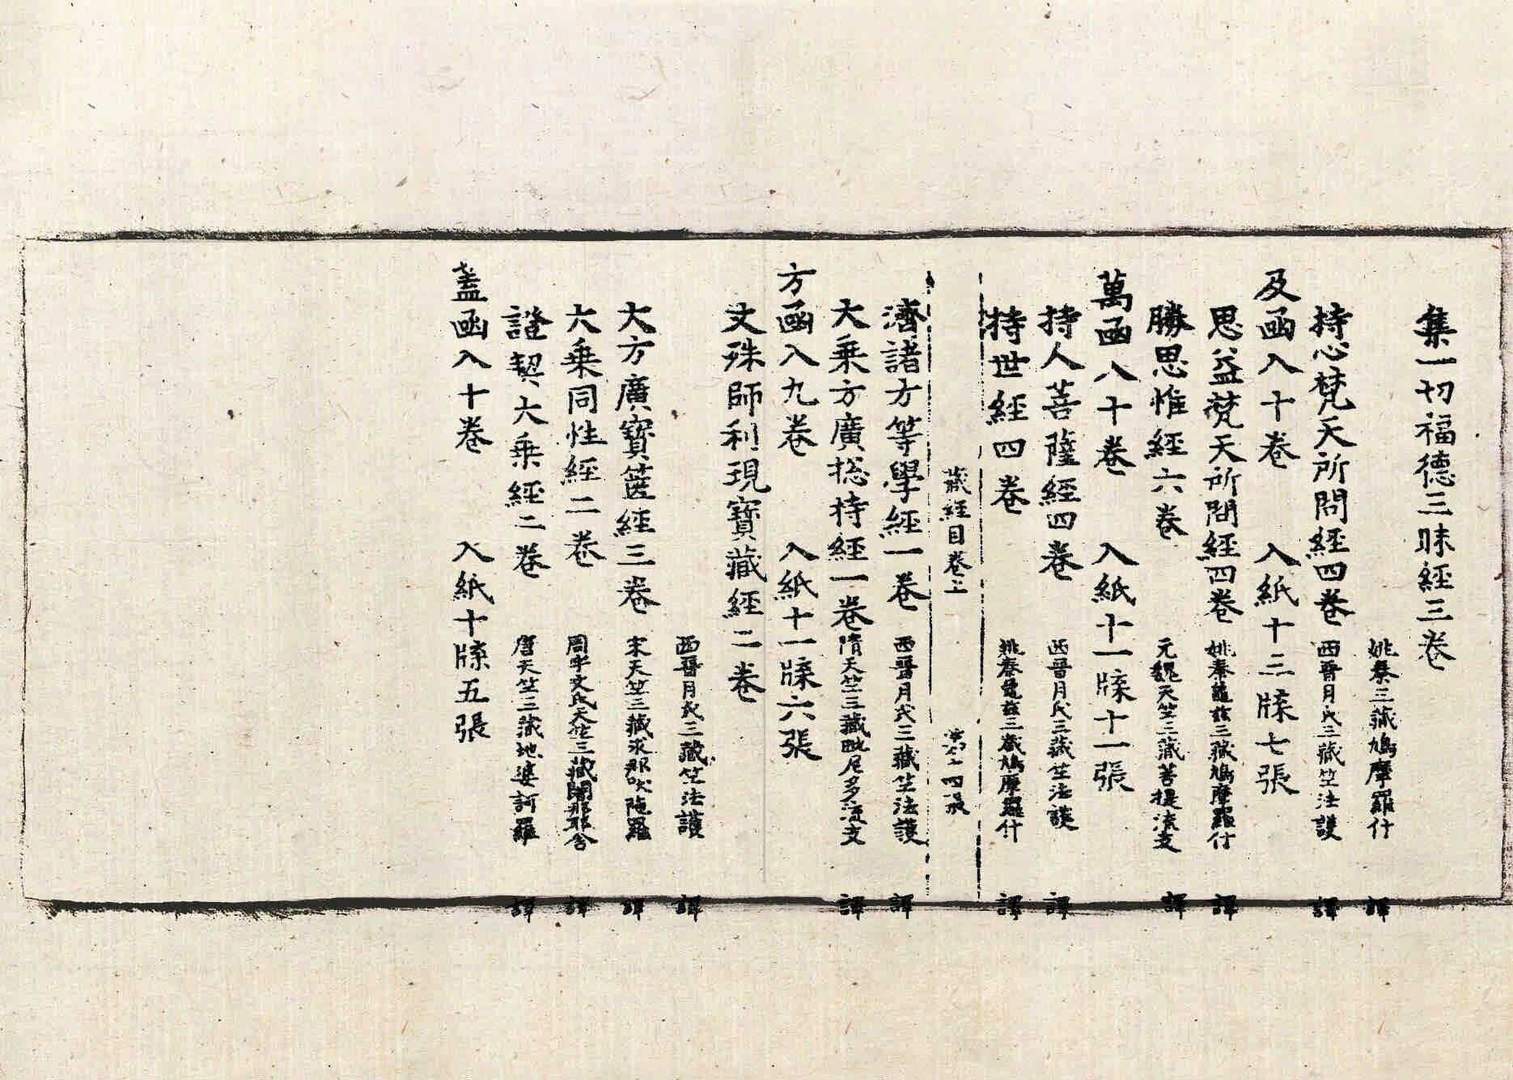 集一切福德三昧經三卷
姚秦三藏鳩摩羅什譯
持心梵天所問經四卷 西晉月氏三藏竺法護譯
及函入十卷 入紙十三牒七張
思益梵天所問經四卷 姚秦龜兹三藏鳩摩羅什譯
勝思惟經六卷 元魏天竺三藏菩提流支譯
萬函入十卷 入紙十一牒十一張
持人菩薩經四卷 西晉月氏三藏竺法護譯
持世經四卷 姚秦龜兹三藏鳩摩羅什譯
藏經目卷上 四張
濟諸方等學經一卷 西晉月氏三藏竺法護譯
大乗方廣捴持經一卷 隋天竺三藏毗尼多流支譯
方函入九卷 入紙十一牒六張
文殊師利現寶藏經二卷
西晉月氏三藏竺法護譯
大方廣寶篋經三卷 宋天竺三藏求那吠陁羅譯
大乗同性經二卷 周宇文氏天竺三藏闍那耶舎譯
證契大乗經二卷 唐天竺三藏地婆訶羅譯
盖函入十卷 入紙十牒五張